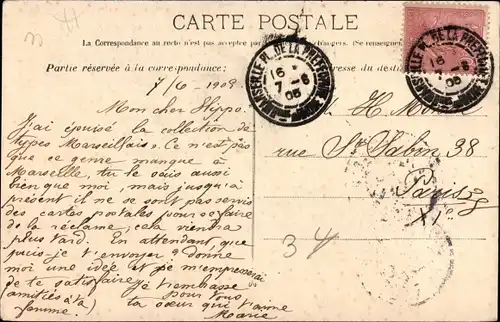 CARTE POSTALE
La Correspondance au recto n'est pas acceptée par
Partie réservée à la correspondance:
esse du desti
MARSEILLE PL. DE LA PREFECTURE
16
7 -6
05
MARSEILLE PL. DE LA PREFECTURE
16
7 -6
05
7/6 1905
Mon cher Hippo.
J'ai épuisé la collection de
types Marseillais. Ce n'est pas
que ce genre manque à
Marseille, tu le sais aussi
bien que moi, mais jusqu'à
présent il ne se sont pas servis
des cartes postales pour se faire
de la réclame, cela viendra
plus tard. En attendant, que
puis je t'envoyer? donne
moi une idée et je m'empresserai
de te satisfaire
je t'embrasse
pour tous
ta sœur qui t'aime
Marie
(amitiés à ta
femme.)
H.
rue St Sabin 38
Paris
XIe
34